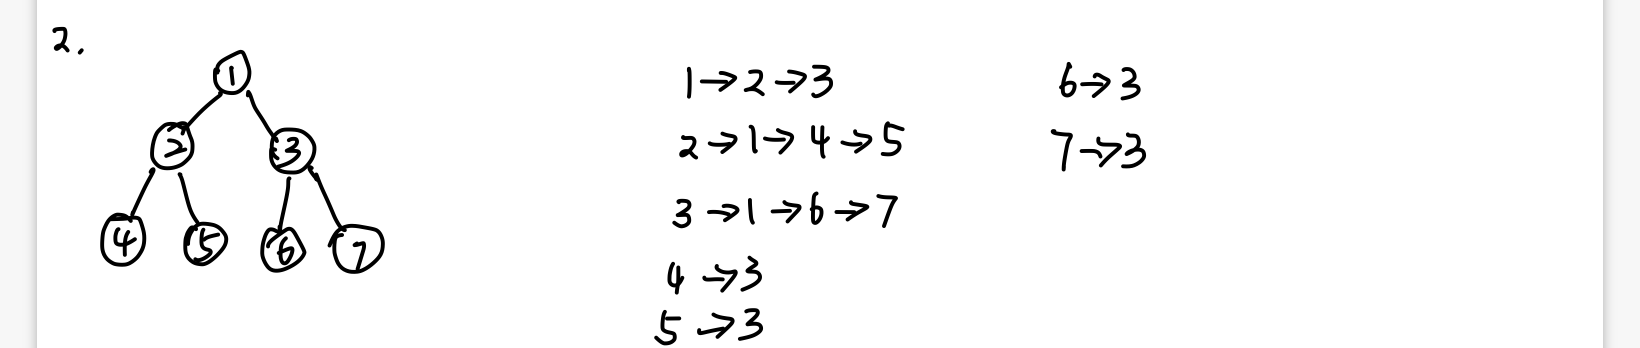 2.
1
2 3
4 5 6 7
1→2→3
2→1→4→5
3→1→6→7
4→3
5→3
6→3
7→3